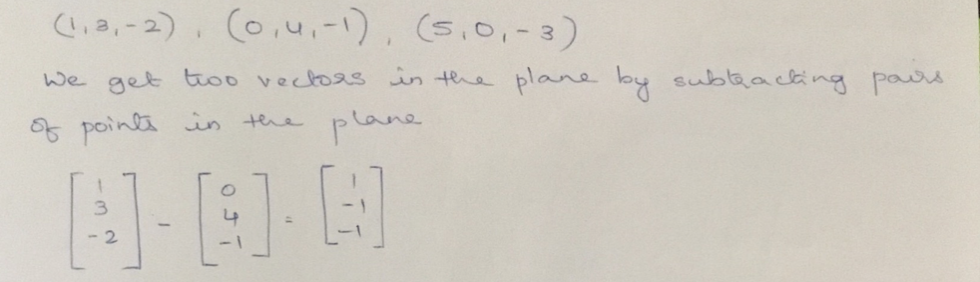 (1,3,-2), (0,4,-1), (5,0,-3)
We get two vectors in the plane by subtracting pairs
of points in the plane
[1 3 -2] - [0 4 -1] = [1 -1 -1]